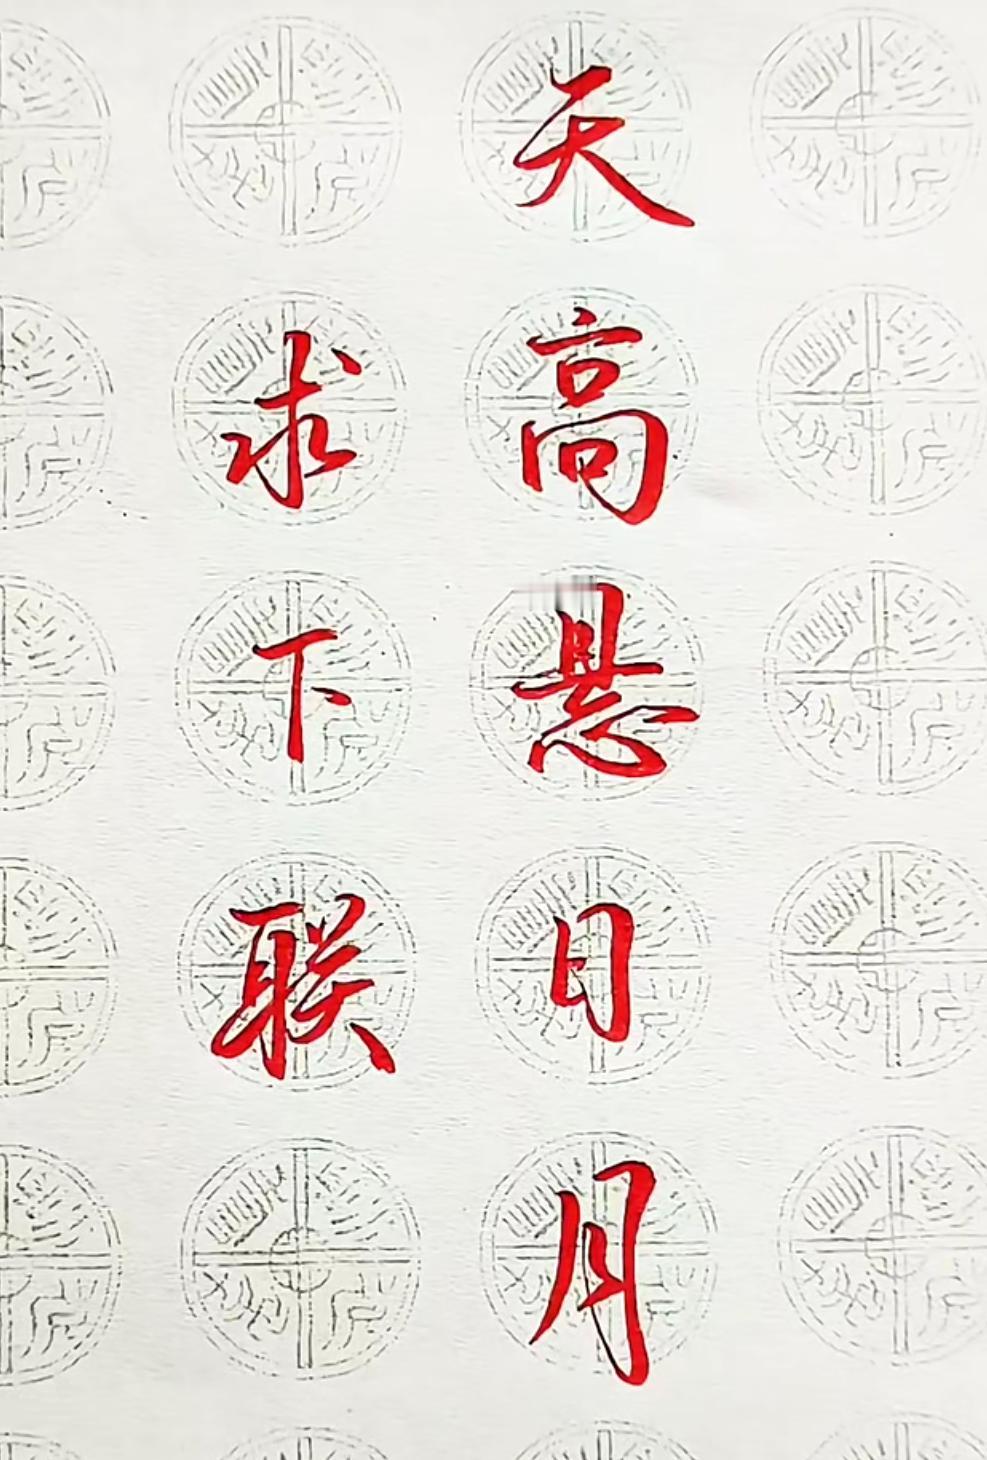 天高悬日月
求下联